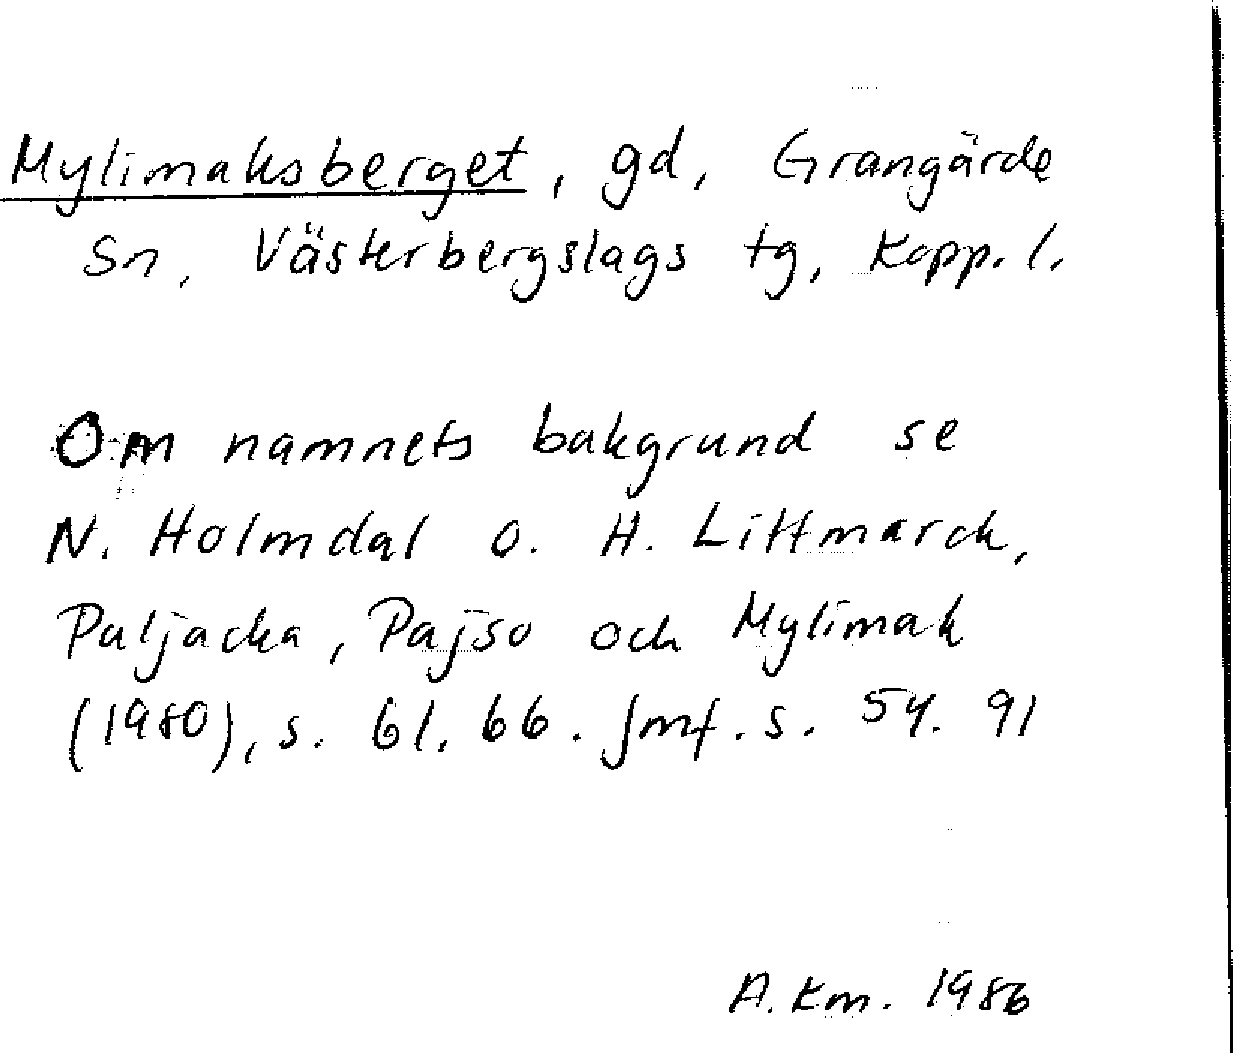 Mylimaksberget, gd, Grangärde
Sn, Västerbergslags tg, Kopp. l.
Om namnets bakgrund se
N. Holmdal o. H. Littmarck,
Paljacka, Pajso och Mylimak
(1980), s. 61. 66. Jmf. s. 54. 91
A. Km. 1986